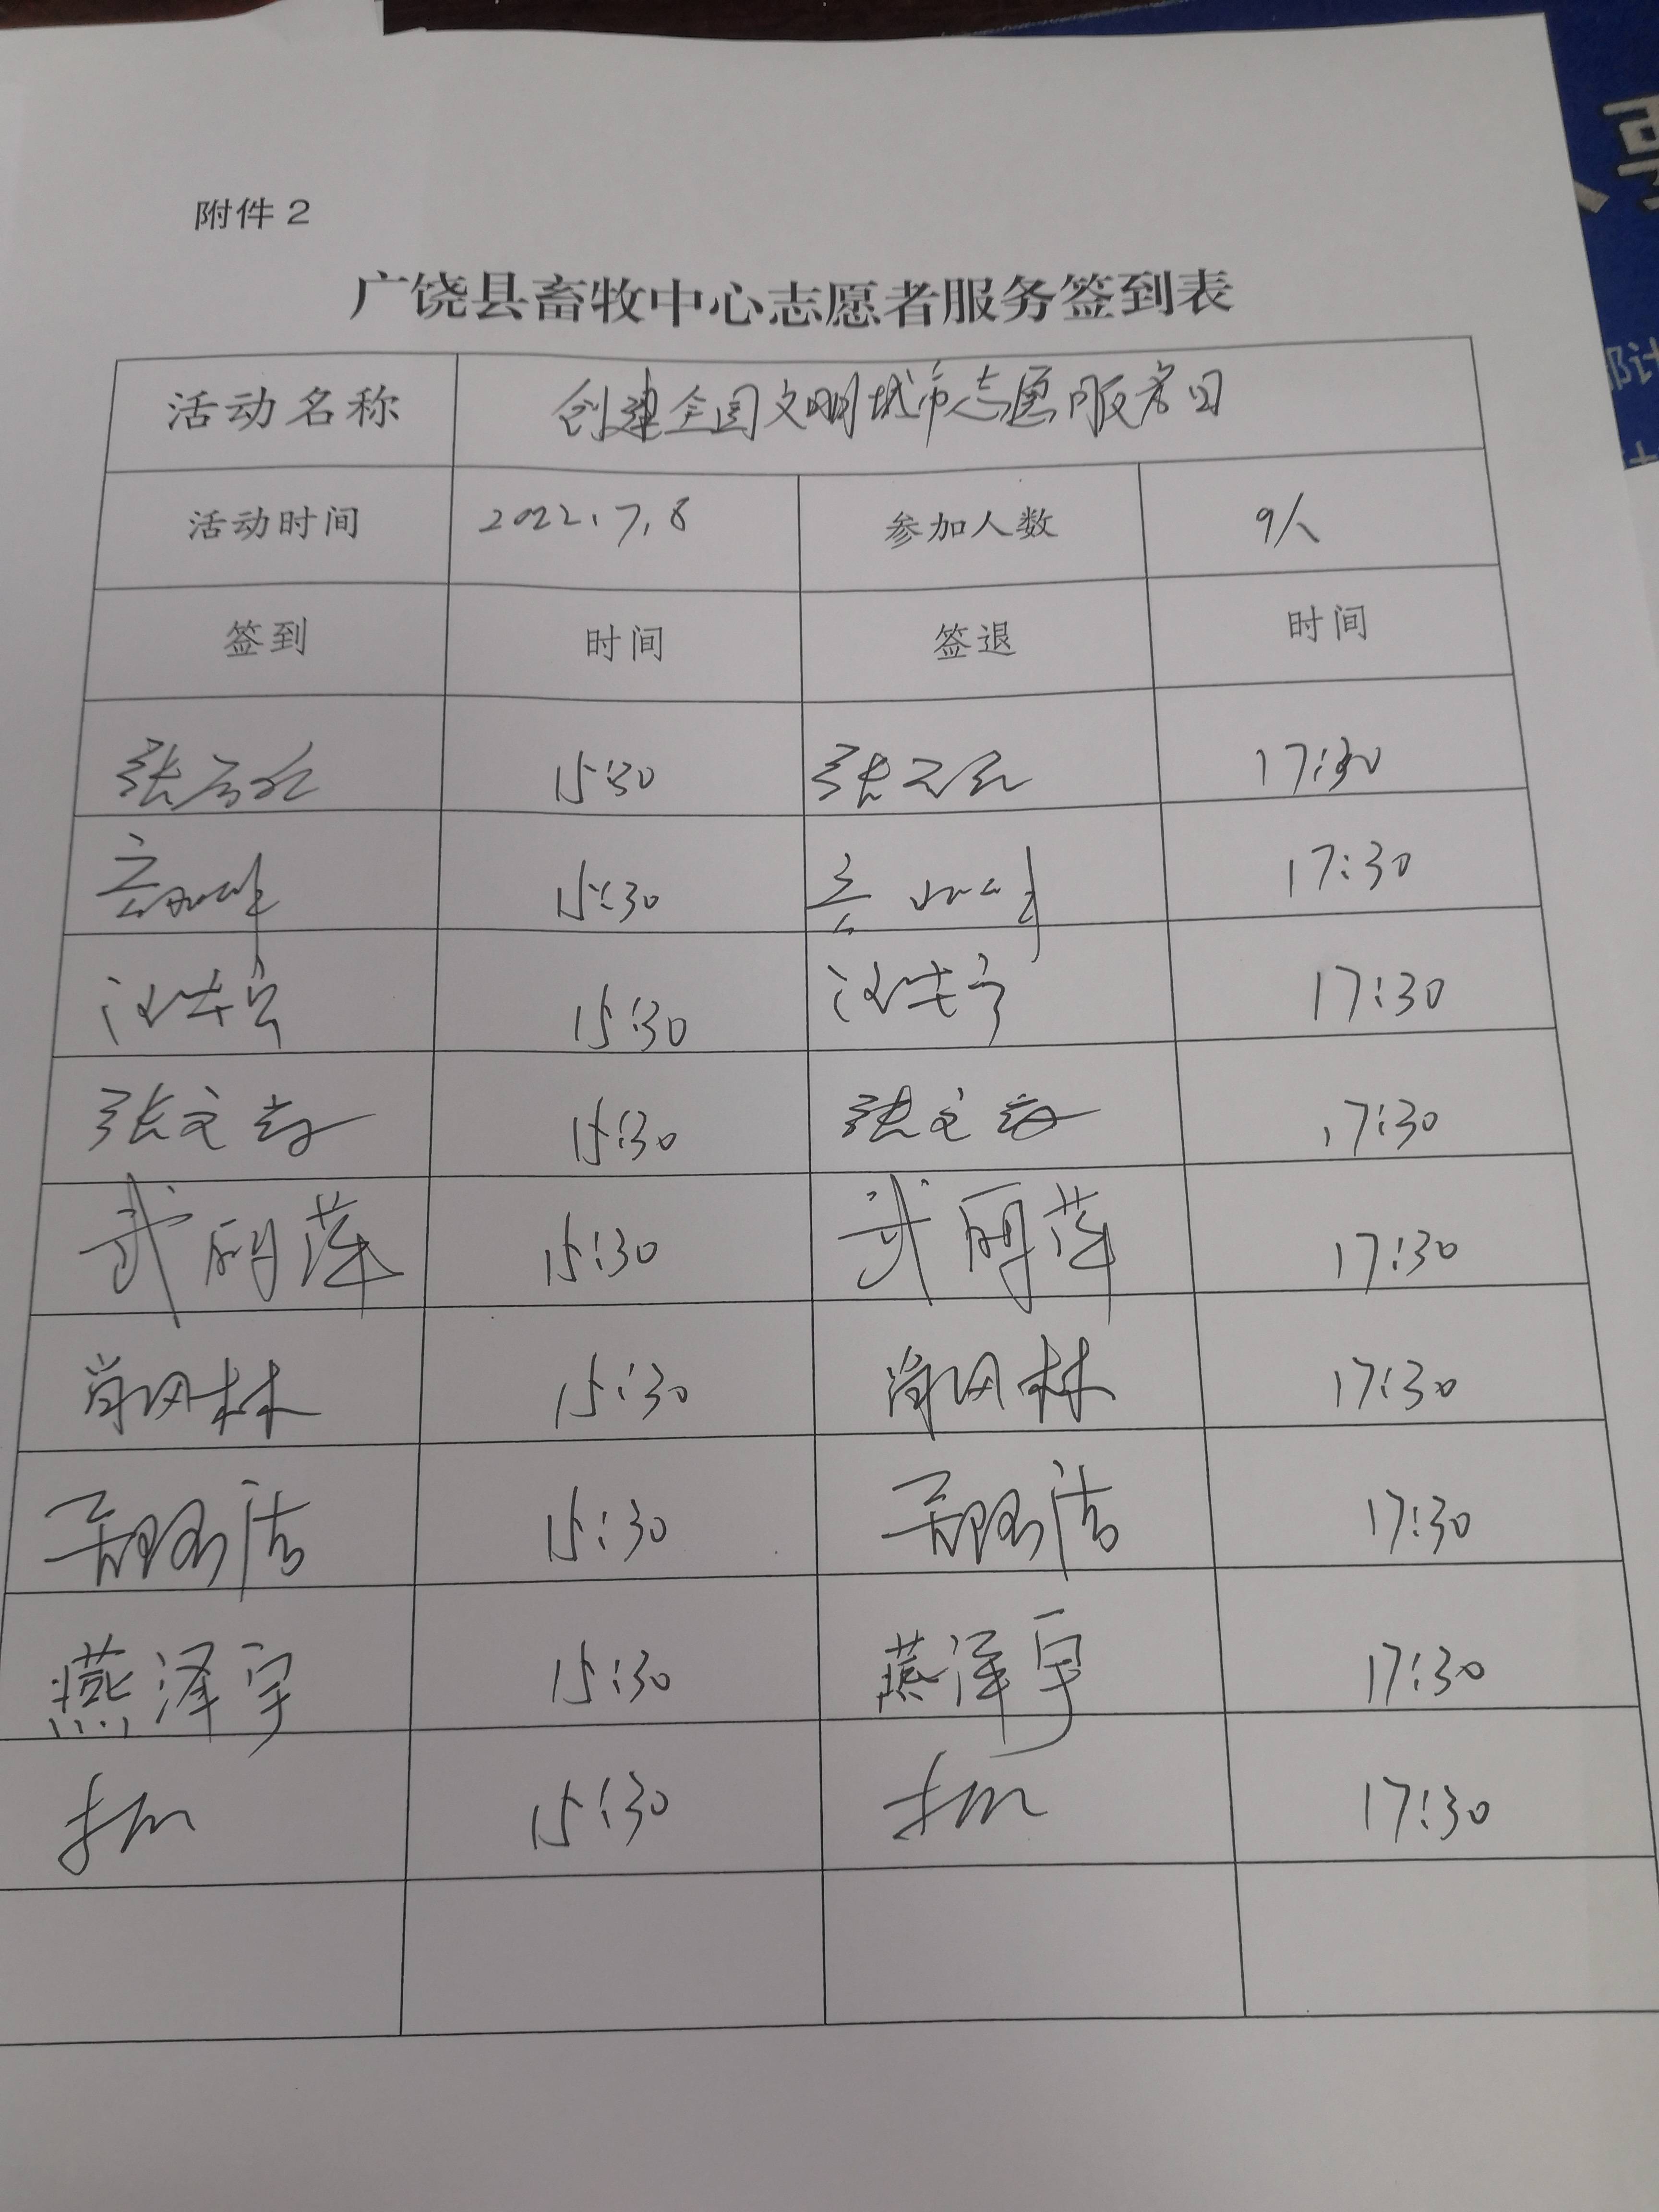 附件2
广饶县畜牧中心志愿者服务签到表
活动名称 创建全国文明城市志愿服务日
活动时间 2022.7.8 参加人数 9人
签到 时间 签退 时间
张 15:30 张 17:30
15:30 17:30
15:30 17:30
张文 15:30 张文 17:30
武丽萍 15:30 武丽萍 17:30
林 15:30 林 17:30
洁 15:30 洁 17:30
燕泽宇 15:30 燕泽宇 17:30
15:30 17:30